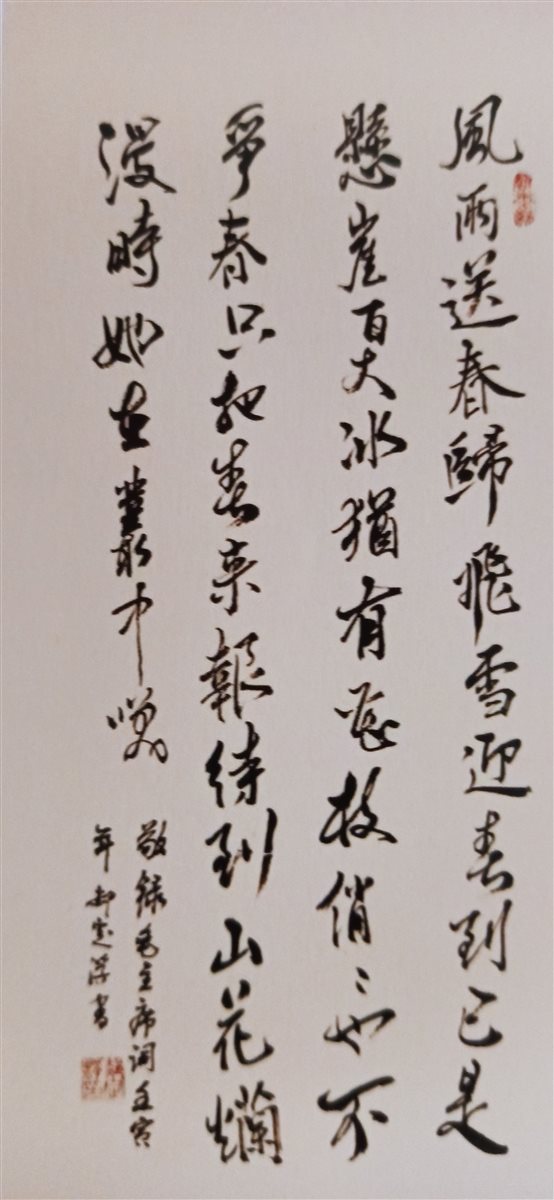 風雨送春歸飛雪迎春到已是
懸崖百丈冰猶有花枝俏〻也不
爭春只把春來報待到山花爛
漫時她在叢中笑
敬錄毛主席詞壬寅
年書